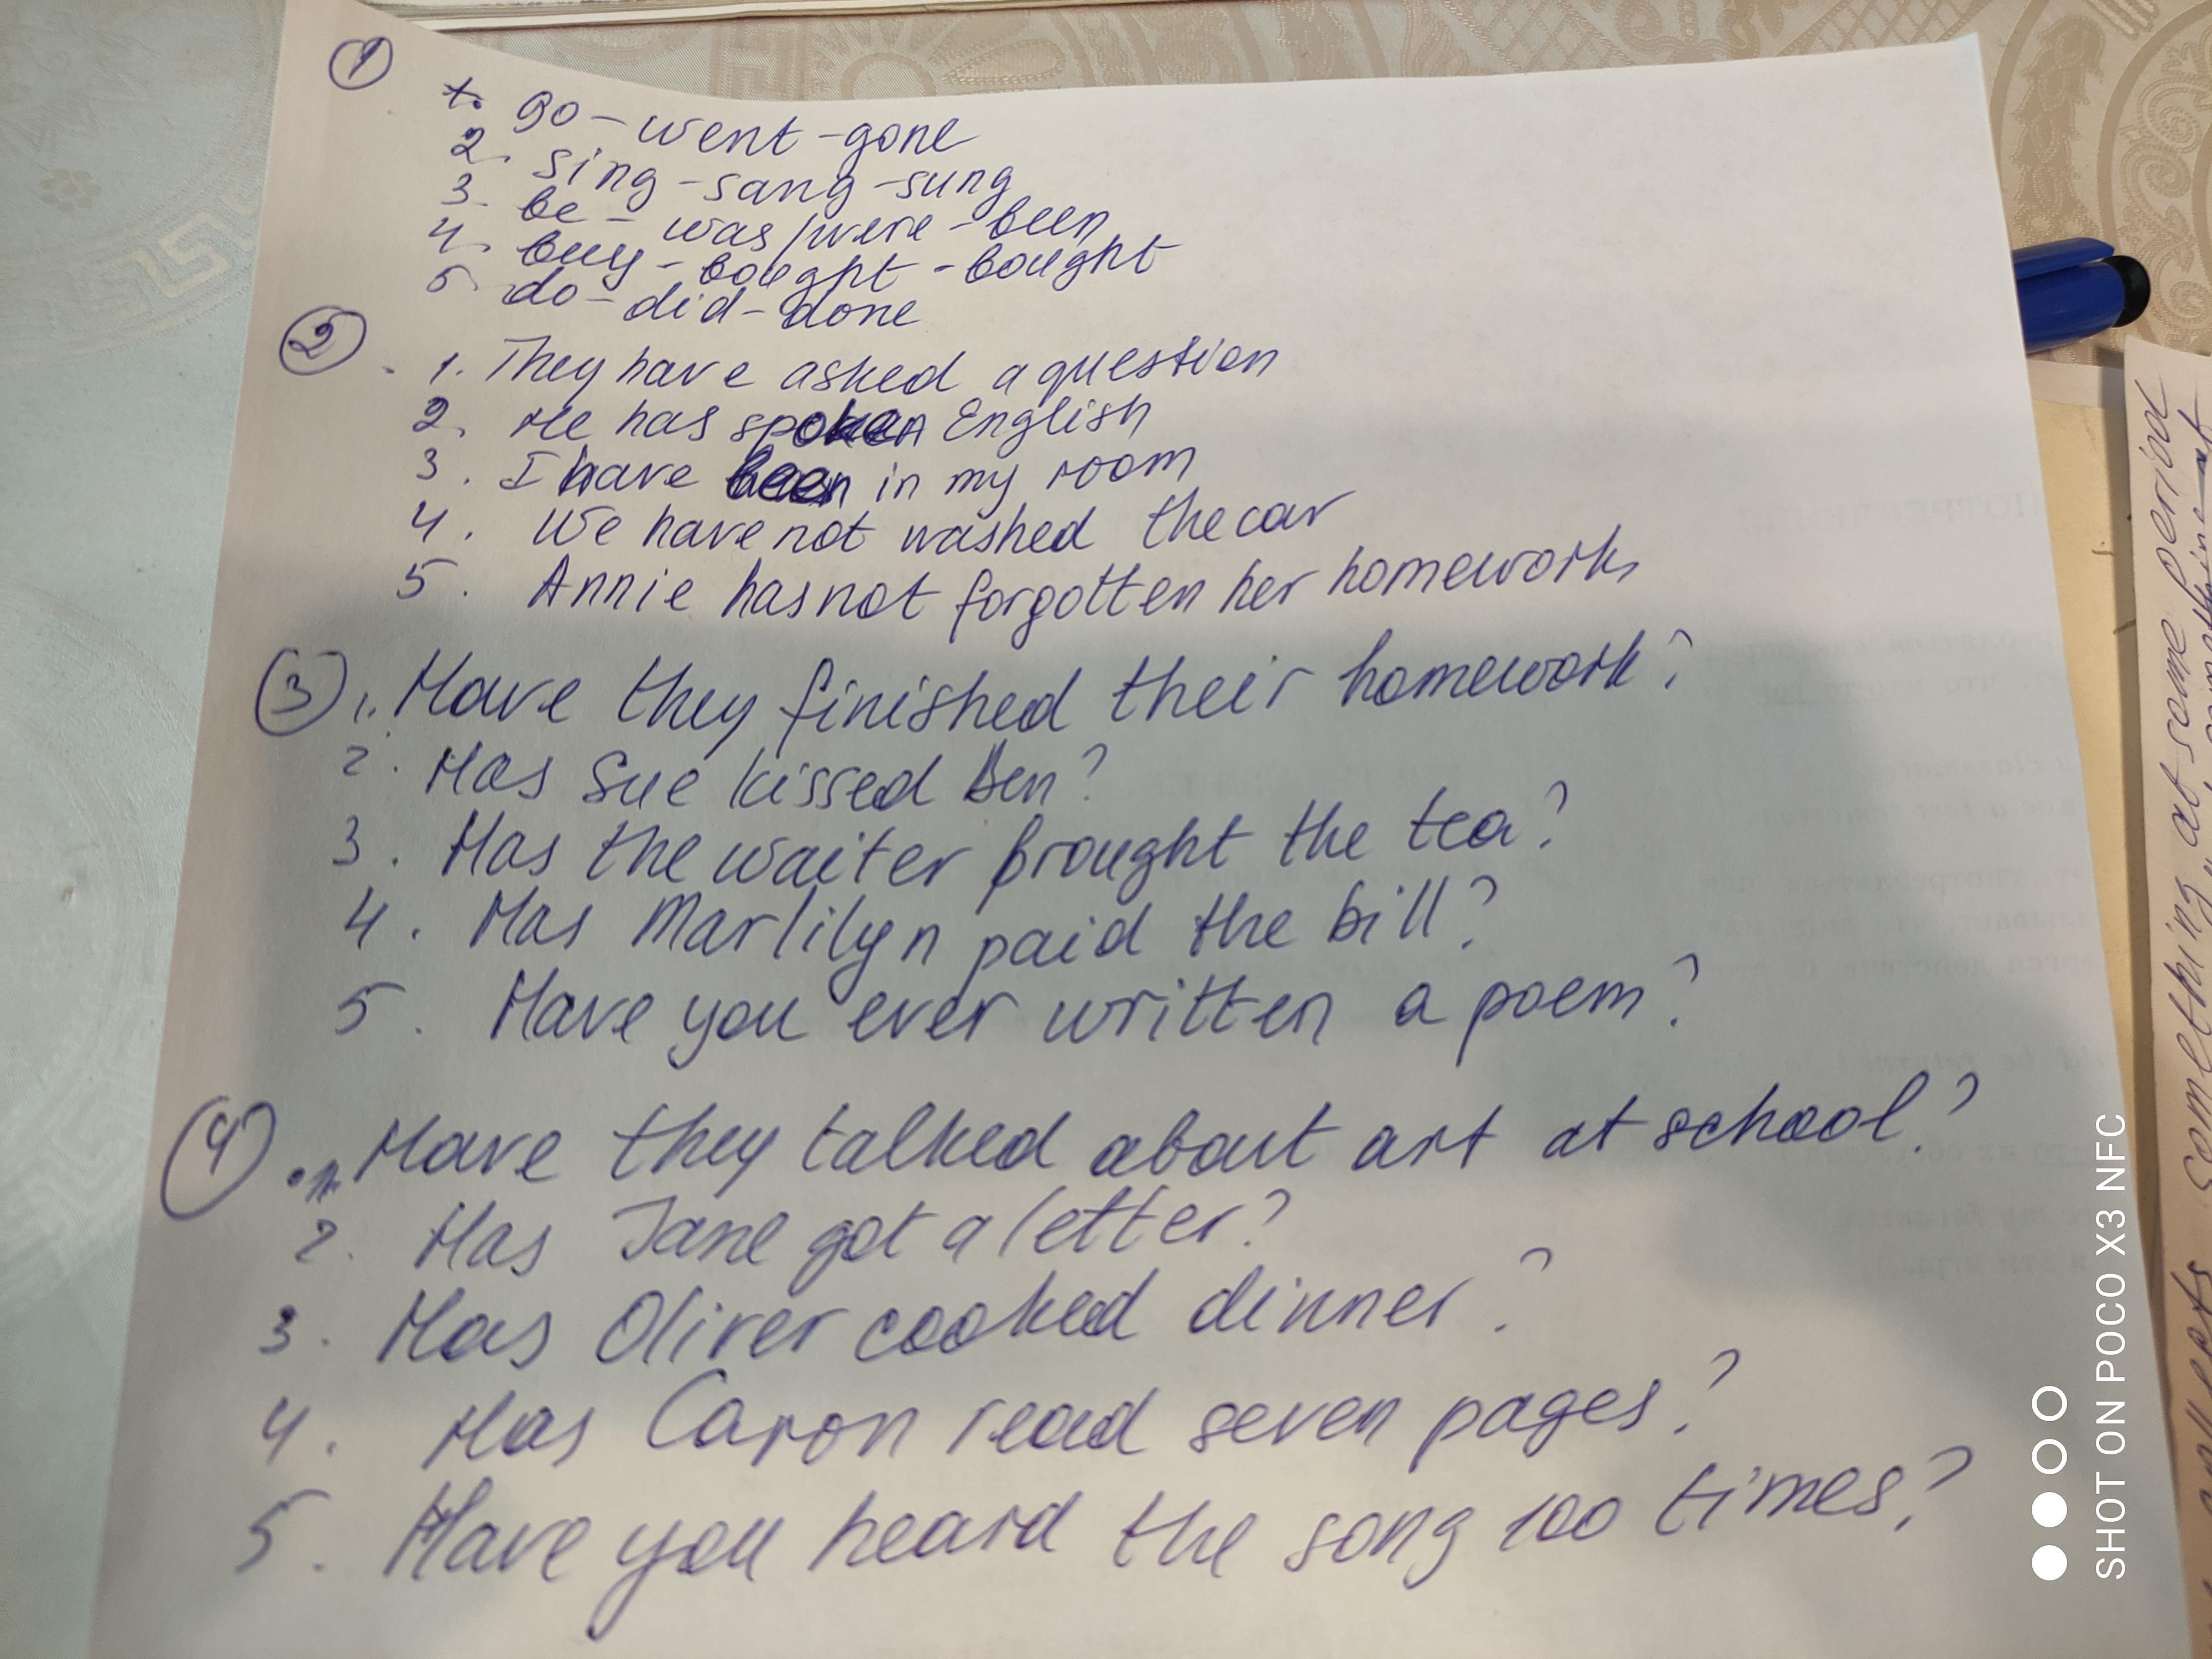 1
1. go - went - gone
2. sing - sang - sung
3. be - was/were - been
4. buy - bought - bought
5. do - did - done
2
1. They have asked a question
2. He has spoken English
3. I have been in my room
4. We have not washed the car
5. Annie has not forgotten her homework
3 1. Have they finished their homework?
2. Has Sue kissed Ben?
3. Has the waiter brought the tea?
4. Has Marlilyn paid the bill?
5. Have you ever written a poem?
4 1. Have they talked about art at school?
2. Has Jane got a letter?
3. Has Oliver cooked dinner?
4. Has Caron read seven pages?
5. Have you heard the song 100 times?
something at some period
SHOT ON POCO X3 NFC